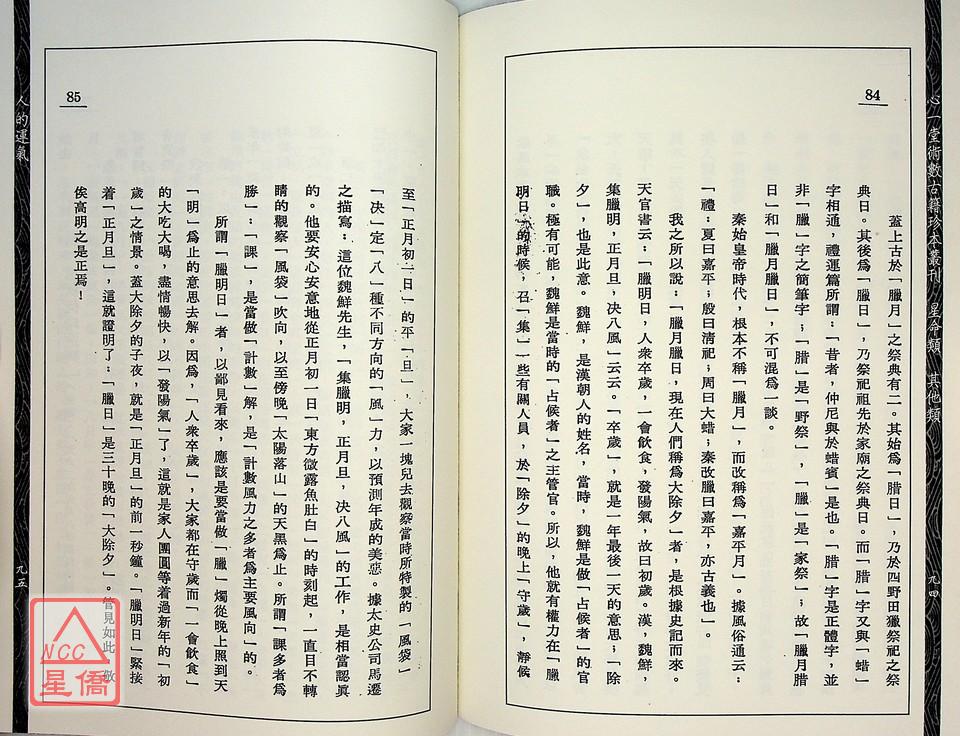 心一堂術數古籍珍本叢刊 星命類 其他類
九四
84
蓋上古於「臘月」之祭典有二。其始為「腊日」，乃於四野田獵祭祀之祭
典日。其後為「臘日」，乃祭祀祖先於家廟之祭典日。而「腊」字又與「蜡」
字相通，禮運篇所謂：「昔者，仲尼與於蜡賓」是也。「腊」字是正體字，並
非「臘」字之簡筆字；「腊」是「野祭」，「臘」是「家祭」；故「臘月腊
日」和「臘月臘日」，不可混為一談。
秦始皇帝時代，根本不稱「臘月」，而改稱為「嘉平月」。據風俗通云：
「禮：夏曰嘉平；殷曰清祀；周曰大蜡；秦改臘曰嘉平，亦古義也」。
我之所以說：「臘月臘日，現在人們稱為大除夕」者，是根據史記而來。
天官書云：「臘明日，人衆卒歲，一會飲食，發陽氣，故曰初歲。漢，魏鮮，
集臘明，正月旦，決八風」云云。「卒歲」，就是一年最後一天的意思；「除
夕」，也是此意。魏鮮，是漢朝人的姓名，當時，魏鮮是做「占候者」的官
職。極有可能，魏鮮是當時的「占候者」之主管官。所以，他就有權力在「臘
明日」的時候，召「集」一些有關人員，於「除夕」的晚上「守歲」，靜候
85
至「正月初一日」的平「旦」，大家一塊兒去觀察當時所特製的「風袋」
「決」定「八」種不同方向的「風」力，以預測年成的美惡。據太史公司馬遷
之描寫：這位魏鮮先生，「集臘明，正月旦，決八風」的工作，是相當認眞
的。他要安心安意地從正月初一日「東方微露魚肚白」的時刻起，一直目不轉
睛的觀察「風袋」吹向，以至傍晚「太陽落山」的天黑為止。所謂「課多者為
勝」：「課」，是當做「計數」解，是「計數風力之多者為主要風向」的。
所謂「臘明日」者，以鄙見看來，應該是要當做「臘」燭從晚上照到天
「明」為止的意思去解。因為，「人衆卒歲」，大家都在守歲而「一會飲食」
的大吃大喝，盡情暢快，以「發陽氣」了，這就是家人團圓等着過新年的「初
歲」之情景。蓋大除夕的子夜，就是「正月旦」的前一秒鐘。「臘明日」緊接
着「正月旦」，這就證明了：「臘日」是三十晚的「大除夕」。管見如此，敬
俟高明之是正焉！
人的運氣
九五
NCC
星僑